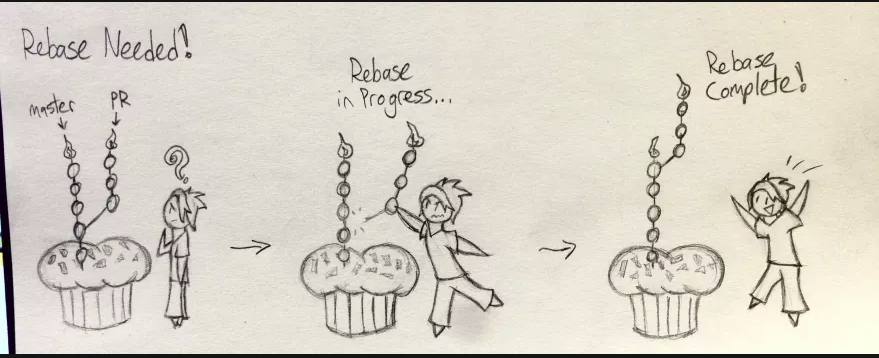 Rebase Needed!
master
PR
?
Rebase
in Progress...
Rebase
Complete!